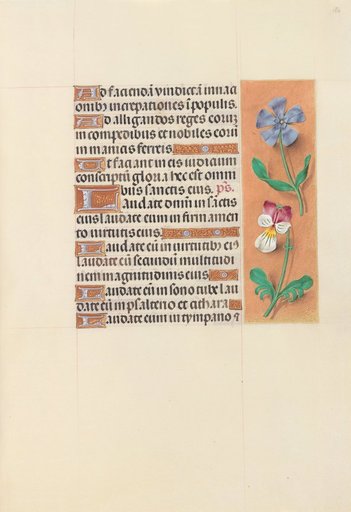 Ad faciendā vindictā in naci
onibꝰ increpationes ī populis.
Ad alligandos reges eoꝝ
in compedibus et nobiles eoꝝ
in manicis ferreis
Et faciant in eis iudicium
conscriptū gloria hec est omni
bus sanctis eius. ps.
Laudate dn̄m in sāctis
eius laudate eum in firmamen
to virtutis eius.
Laudate eū in virtutibꝰ eiꝰ
laudate eū secundū multitudi
nem magnitudinis eius
Laudate eū in sono tube lau
date eū in psalterio et cithara
Laudate eum in tympano ⁊